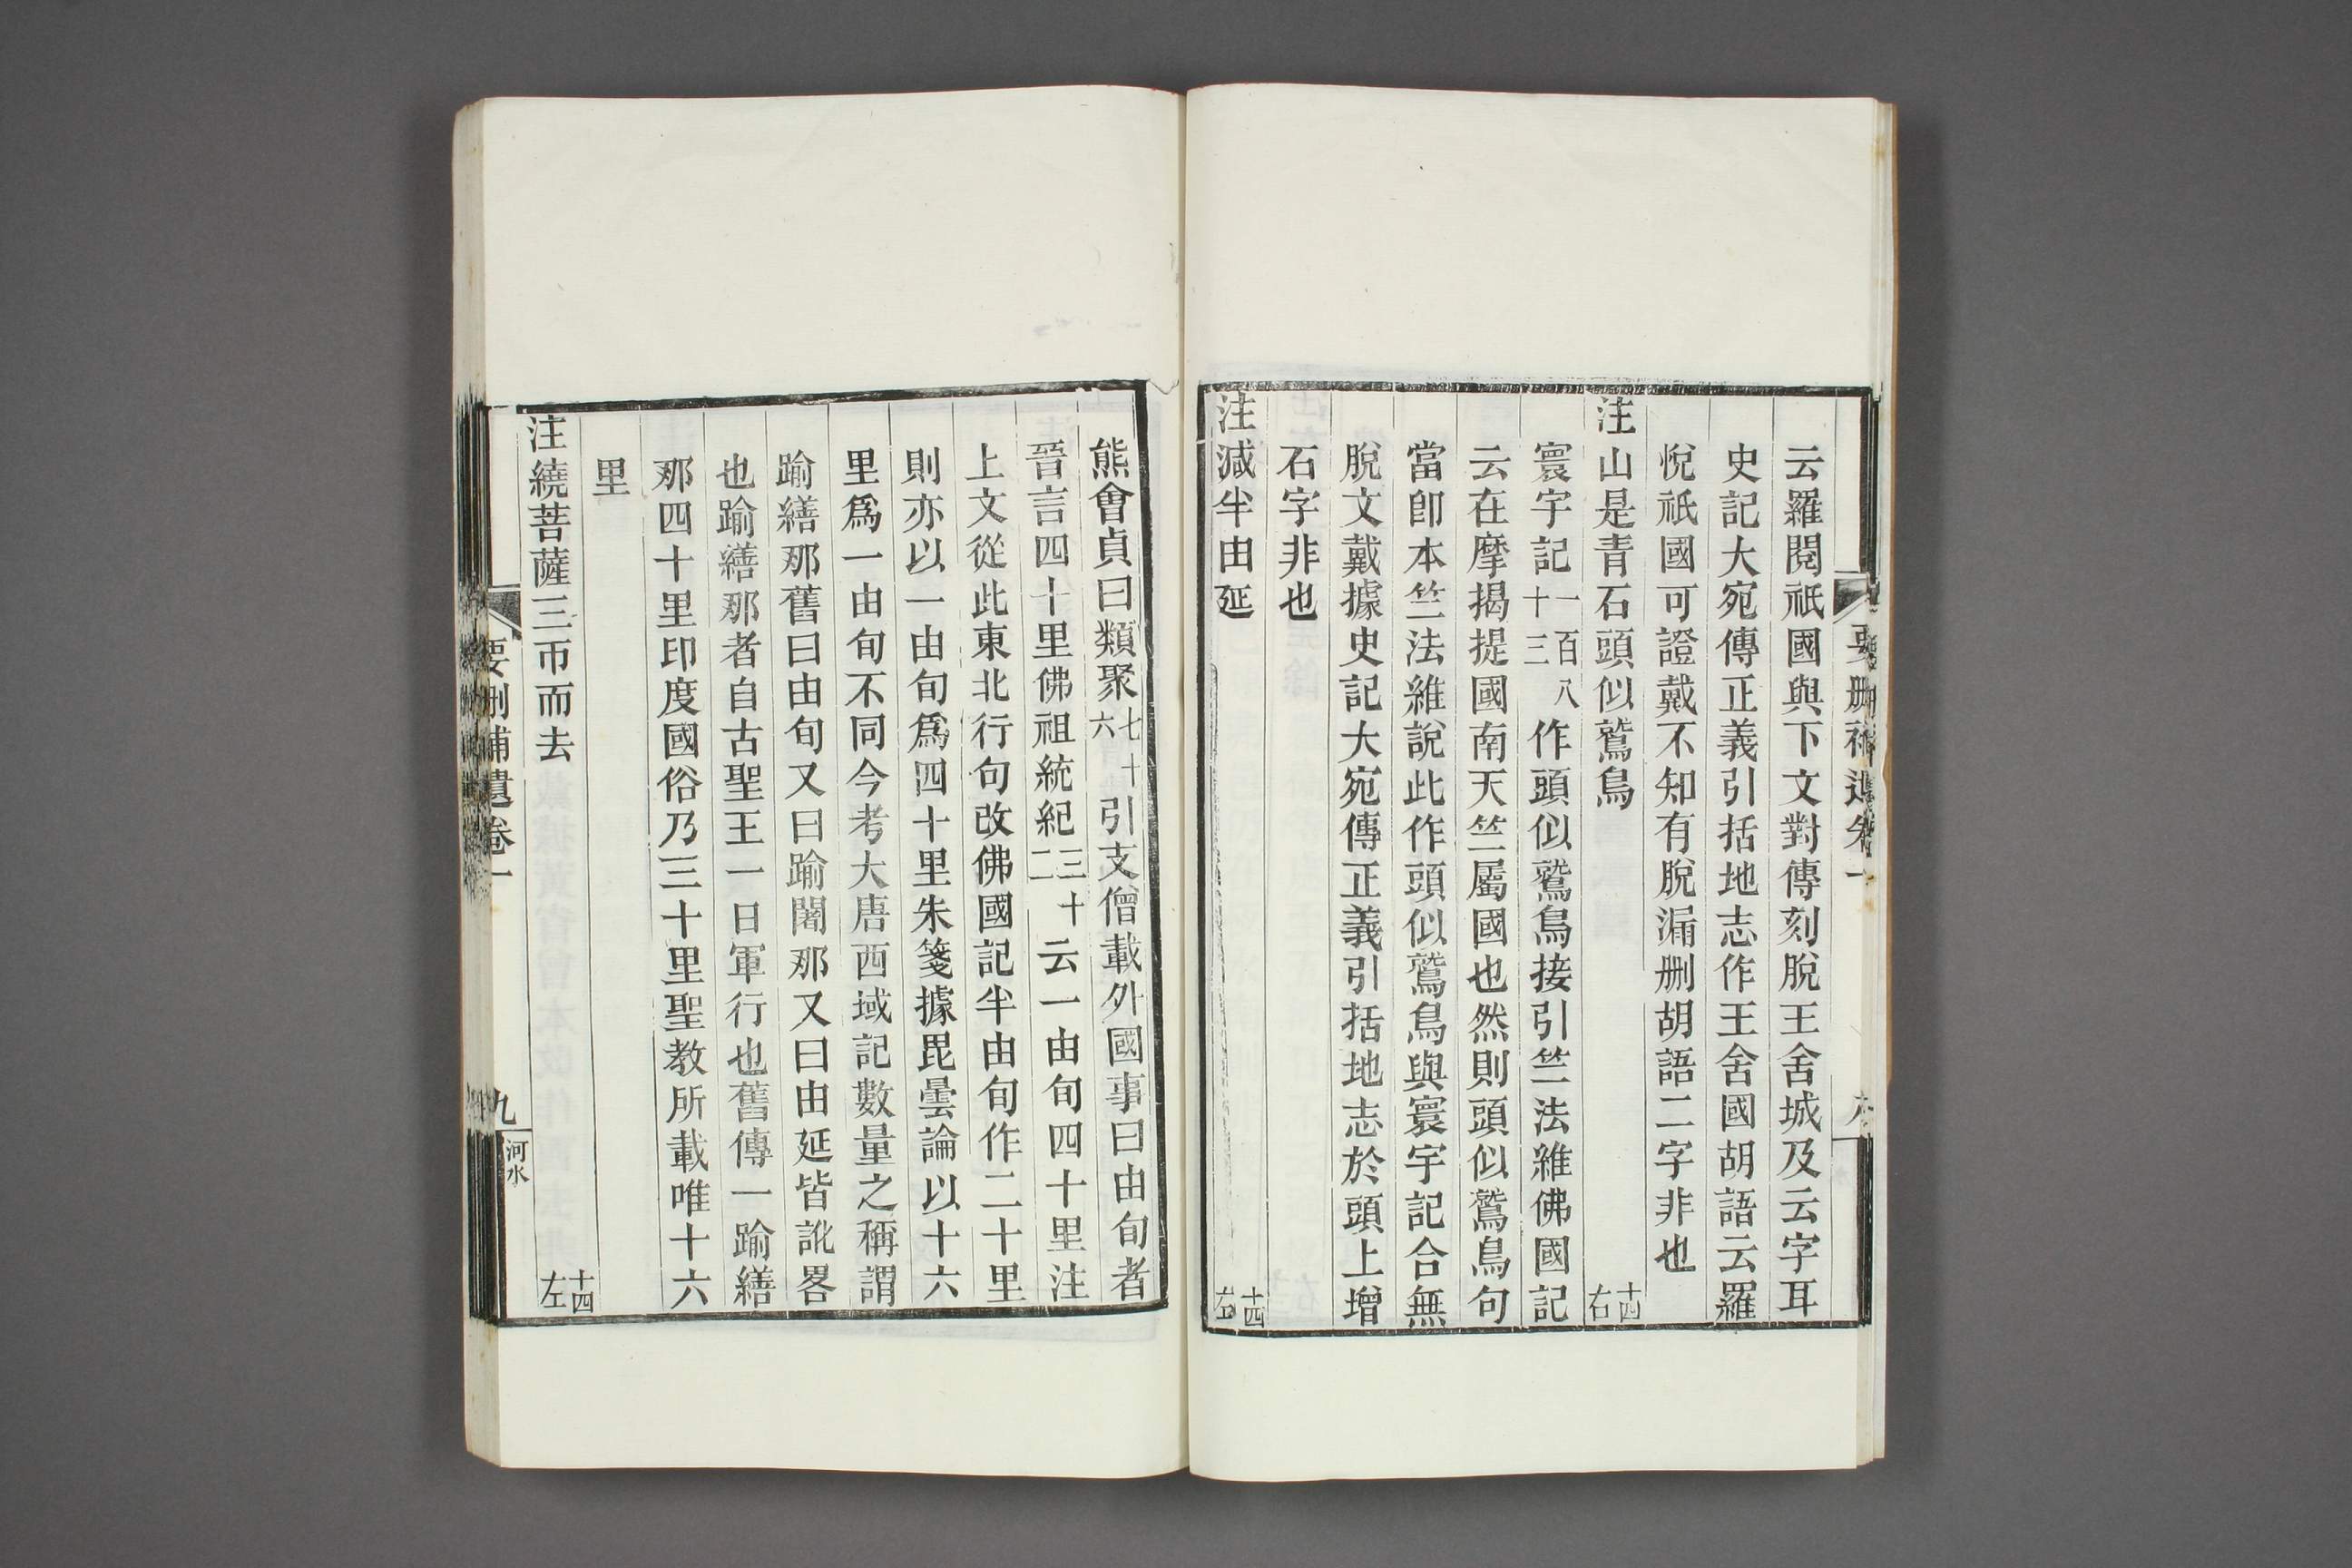 云羅閱祇國與下文對傳刻脫王舍城及云字耳
史記大宛傳正義引括地志作王舍國胡語云羅
悅祇國可證戴不知有脫漏删胡語二字非也
注山是青石頭似鷲鳥 十四右
寰宇記一百八十三作頭似鷲鳥接引竺法維佛國記
云在摩揭提國南天竺屬國也然則頭似鷲鳥句
當卽本竺法維說此作頭似鷲鳥與寰宇記合無
脫文戴據史記大宛傳正義引括地志於頭上增
石字非也
注減半由延 十四左
熊會貞曰類聚七十六引支僧載外國事曰由旬者
晉言四十里佛祖統紀三十二云一由旬四十里注
上文從此東北行句改佛國記半由旬作二十里
則亦以一由旬爲四十里朱箋據毘曇論以十六
里爲一由旬不同今考大唐西域記數量之稱謂
踰繕那舊曰由旬又曰踰闍那又曰由延皆訛畧
也踰繕那者自古聖王一日軍行也舊傳一踰繕
那四十里印度國俗乃三十里聖教所載唯十六
里
注繞菩薩三帀而去 十四左
要删補遺卷一
九
河水